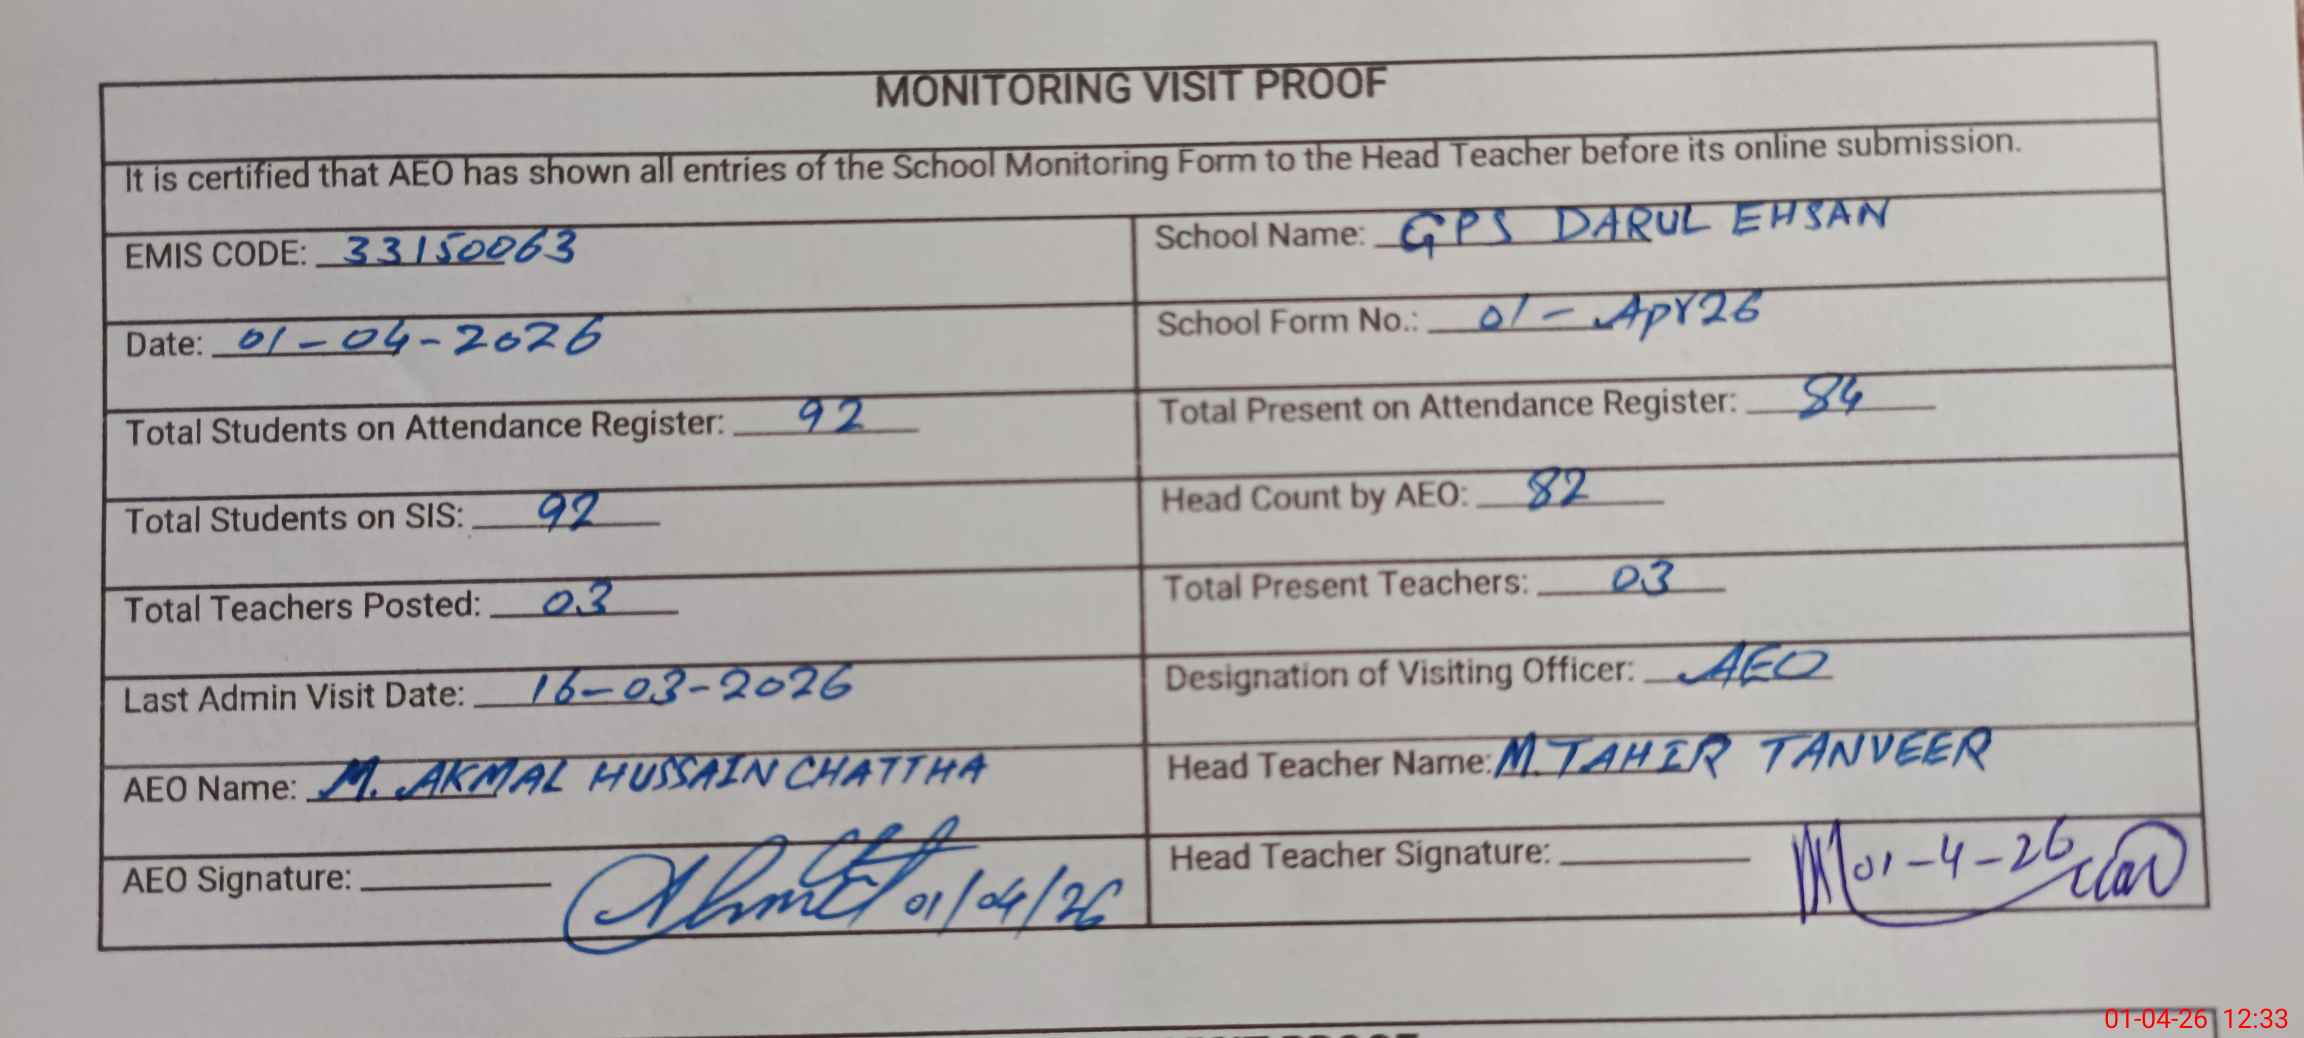 MONITORING VISIT PROOF
It is certified that AEO has shown all entries of the School Monitoring Form to the Head Teacher before its online submission.
EMIS CODE: 33150063
School Name: GPS DARUL EHSAN
Date: 01-04-2026
School Form No.: 01-Apr26
Total Students on Attendance Register: 92
Total Present on Attendance Register: 84
Total Students on SIS: 92
Head Count by AEO: 82
Total Teachers Posted: 03
Total Present Teachers: 03
Last Admin Visit Date: 16-03-2026
Designation of Visiting Officer: AEO
AEO Name: M. AKMAL HUSSAIN CHATTHA
Head Teacher Name: M. TAHIR TANVEER
AEO Signature: 01/04/26
Head Teacher Signature: 01-4-26
01-04-26 12:33